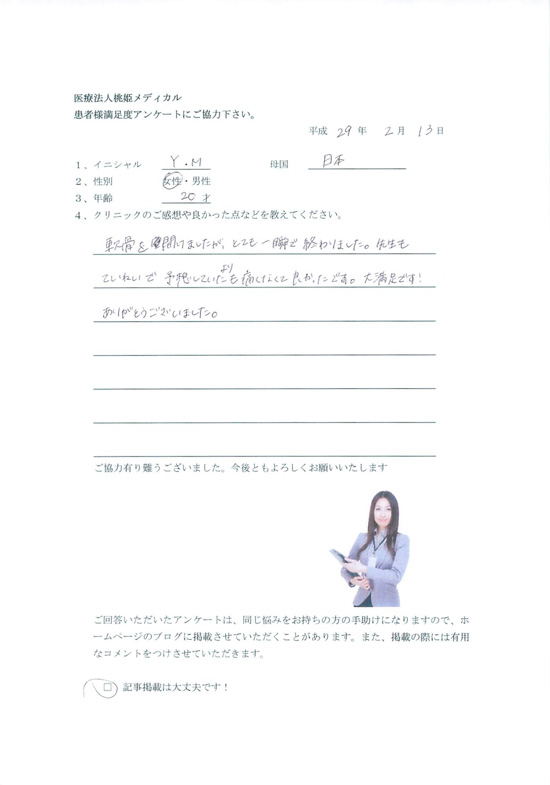 医療法人桃姫メディカル
患者様満足度アンケートにご協力下さい。
平成 29 年 2 月 13 日
1、イニシャル Y.M 母国 日本
2、性別 女性・男性
3、年齢 20才
4、クリニックのご感想や良かった点などを教えてください。
軟骨を開けましたが、とても一瞬で終わりました。先生も
ていねいで予想していたよりも痛くなくて良かったです。大満足です!
ありがとうございました。
ご協力有り難うございました。今後ともよろしくお願いいたします
ご回答いただいたアンケートは、同じ悩みをお持ちの方の手助けになりますので、ホ
ームページのブログに掲載させていただくことがあります。また、掲載の際には有用
なコメントをつけさせていただきます。
□ 記事掲載は大丈夫です!